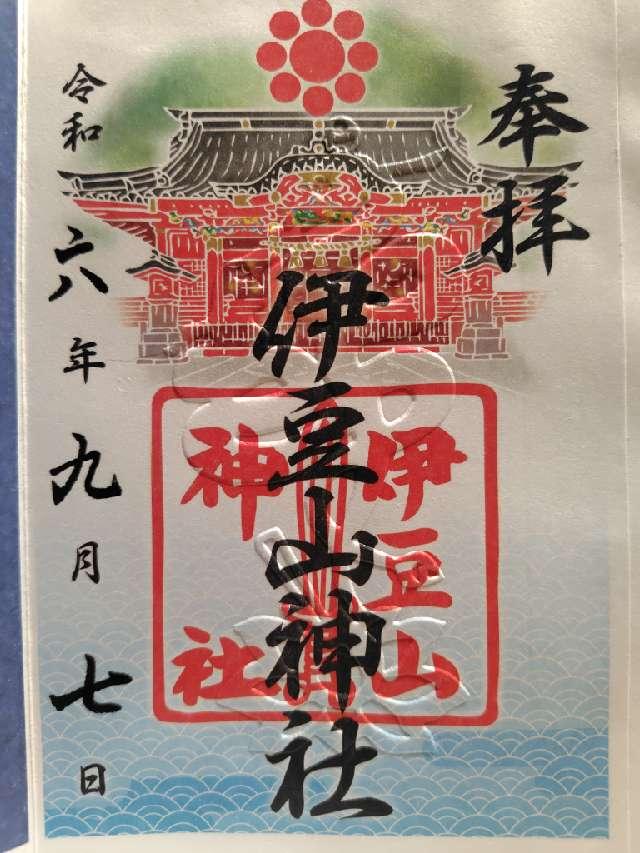 奉拝
伊豆山神社
伊豆山
神社
令和六年九月七日